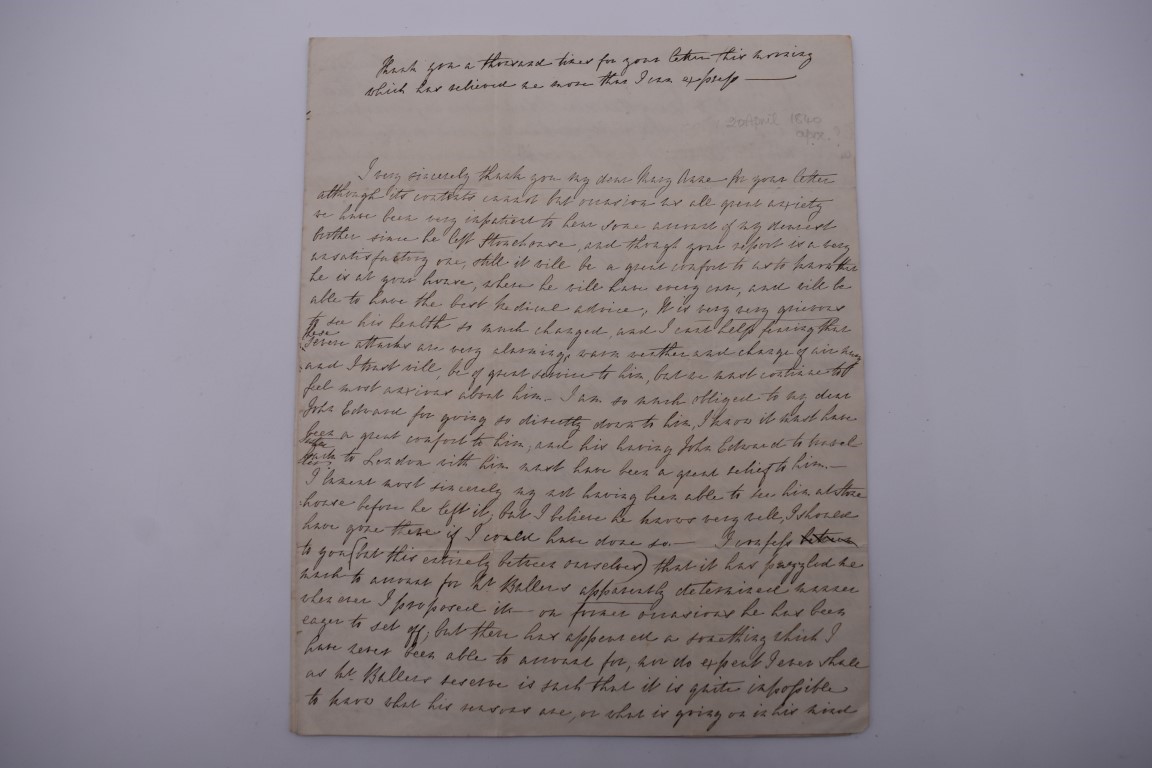 Thank you a thousand times for your letter this morning
which has relieved me more than I can express —
30 April 1840
apx.?
I very sincerely thank you my dear Mary Anne for your letter
although its contents cannot but occasion us all great anxiety
we have been very impatient to hear some account of my dearest
brother since he left Stonehouse, and though your report is a very
unsatisfactory one, still it will be a great comfort to us to know that
he is at your house, where he will have every care, and will be
able to have the best Medical advice, It is very very grievous
to see his health so much changed, and I can't help fearing that
these
severe attacks are very alarming, warm weather and change of air may
and I trust will, be of great service to him, but we must continue to
feel most anxious about him — I am so much obliged to my dear
John Edward for going so directly down to him, I know it must have
been a great comfort to him, and his having John Edward to travel
to London with him must have been a great relief to him. —
I lament most sincerely my not having been able to see him at Stone
house before he left it, but I believe he knows very well, I should
have gone there if I could have done so — I confess between
to you (but this entirely between ourselves) that it has puzzled me
much to account for Mr. Bullers apparently determined manner
whenever I proposed it — on former occasions he has been
eager to set off; but there has appeared a something which I
have never been able to account for, nor do expect I ever shall
as Mr. Bullers reserve is such that it is quite impossible
to know what his reasons are, or what is going on in his mind